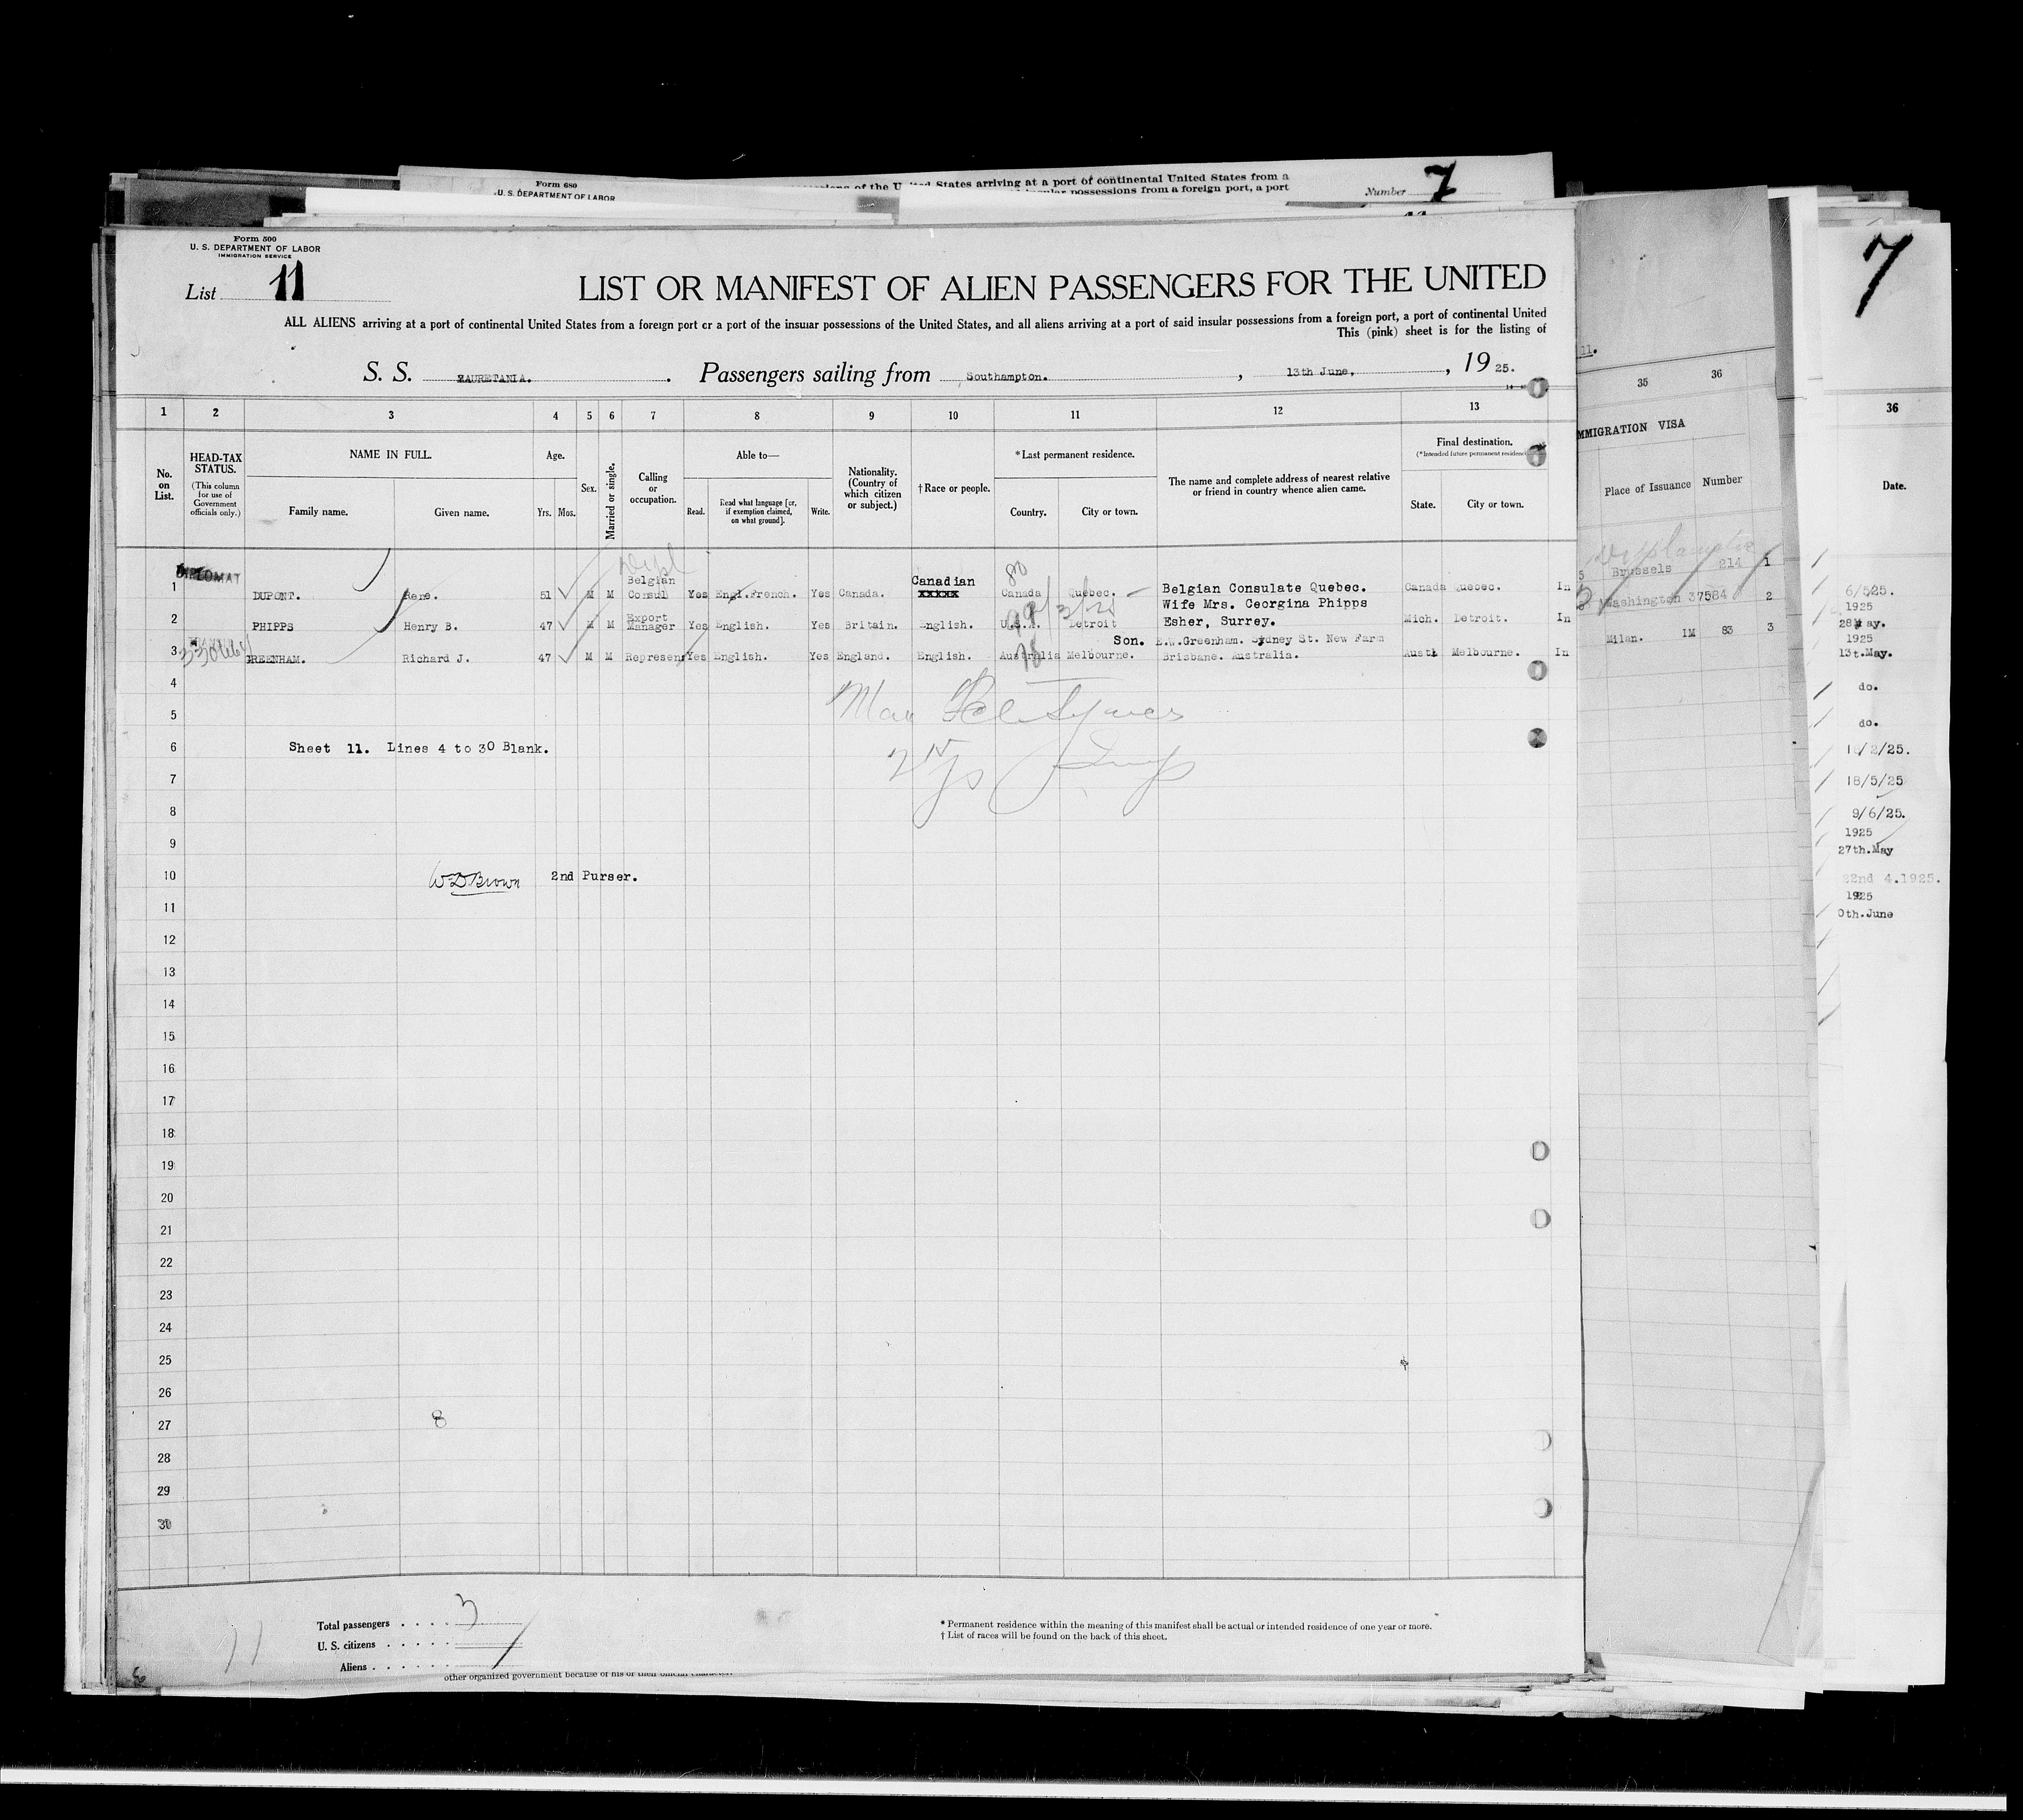 Form 680
U. S. DEPARTMENT OF LABOR
States arriving at a port of continental United States from a
possessions from a foreign port, a port
Number 7
Form 500
U. S. DEPARTMENT OF LABOR
IMMIGRATION SERVICE
List 11
LIST OR MANIFEST OF ALIEN PASSENGERS FOR THE UNITED
ALL ALIENS arriving at a port of continental United States from a foreign port or a port of the insular possessions of the United States, and all aliens arriving at a port of said insular possessions from a foreign port, a port of continental United
This (pink) sheet is for the listing of
S. S. MAURETANIA. Passengers sailing from Southampton. , 13th June, , 1925.
1 2 3 4 5 6 7 8 9 10 11 12 13
No. on List.
HEAD-TAX STATUS.
(This column for use of Government officials only.)
NAME IN FULL.
Family name. Given name.
Age.
Yrs. Mos.
Sex.
Married or single.
Calling or occupation.
Able to—
Read. Read what language [or, if exemption claimed, on what ground]. Write.
Nationality. (Country of which citizen or subject.)
† Race or people.
* Last permanent residence.
Country. City or town.
The name and complete address of nearest relative or friend in country whence alien came.
Final destination.
(* Intended future permanent residence)
State. City or town.
DIPLOMAT
Dipl
1 DUPONT. Rene. 51 M M Belgian Consul Yes Engl.French. Yes Canada. Canadian xxxxx Canada Quebec. Belgian Consulate Quebec. Canada Quebec. In
2 PHIPPS Henry B. 47 M M Export Manager Yes English. Yes Britain. English. U.S.A. Detroit Wife Mrs. Georgina Phipps Esher, Surrey. Mich. Detroit. In
3 GREENHAM. Richard J. 47 M M Represen Yes English. Yes England. English. Australia Melbourne. Son. E.W.Greenham. Sydney St. New Farm Brisbane. Australia. Austl Melbourne. In
80
99
78
4
5
6 Sheet 11. Lines 4 to 30 Blank.
7
8
9
10 W D Brown 2nd Purser.
11
12
13
14
15
16
17
18
19
20
21
22
23
24
25
26
27
28
29
30
8
Total passengers . . . . 3
U. S. citizens . . . . .
Aliens . . . . . .
11
* Permanent residence within the meaning of this manifest shall be actual or intended residence of one year or more.
† List of races will be found on the back of this sheet.
other organized government because of his or their official character.
11.
35 36
IMMIGRATION VISA
Place of Issuance Number
Brussels 214 1
Washington 37584 2
Milan. IM 83 3
7
36
Date.
6/525.
1925
28 May.
1925
13t.May.
do.
do.
18/5/25
9/6/25.
1925
27th.May
22nd 4.1925.
1925
0th.June